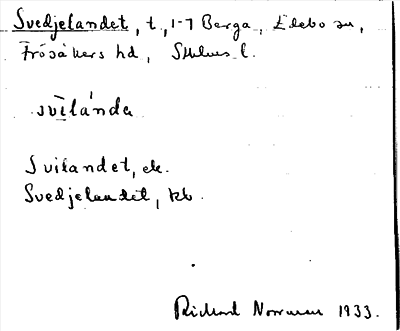 Svedjelandet, t., 1-7 Berga, Edebo sn,
Frösåkers hd, Sthlms l.
svīlándɑ
Svilandet, ek.
Svedjelandet, kb.
Richard Norrman 1933.